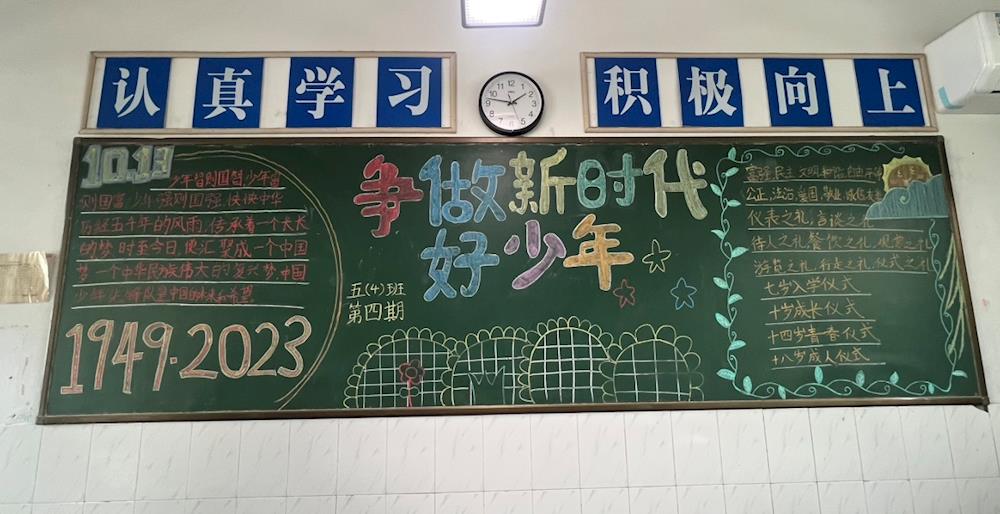 认真学习
积极向上
10.13
少年智则国智,少年富
则国富,少年强则国强,泱泱中华
历经五千年的风雨,传承着一个大大
的梦,时至今日,便汇聚成一个中国
梦,一个中华民族伟大的复兴梦.中国
少年
1949.2023
争做新时代
好少年
五(4)班
第四期
富强 民主 文明 和谐 自由 平等
公正,法治,爱国,敬业,诚信友善
仪表之礼,言谈之礼
待人之礼,餐饮之礼,观赏之礼
游览之礼,行走之礼,仪式之礼
七岁入学仪式
十岁成长仪式
十四岁青春仪式
十八岁成人仪式